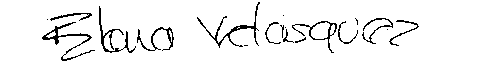 Elana Velasquez